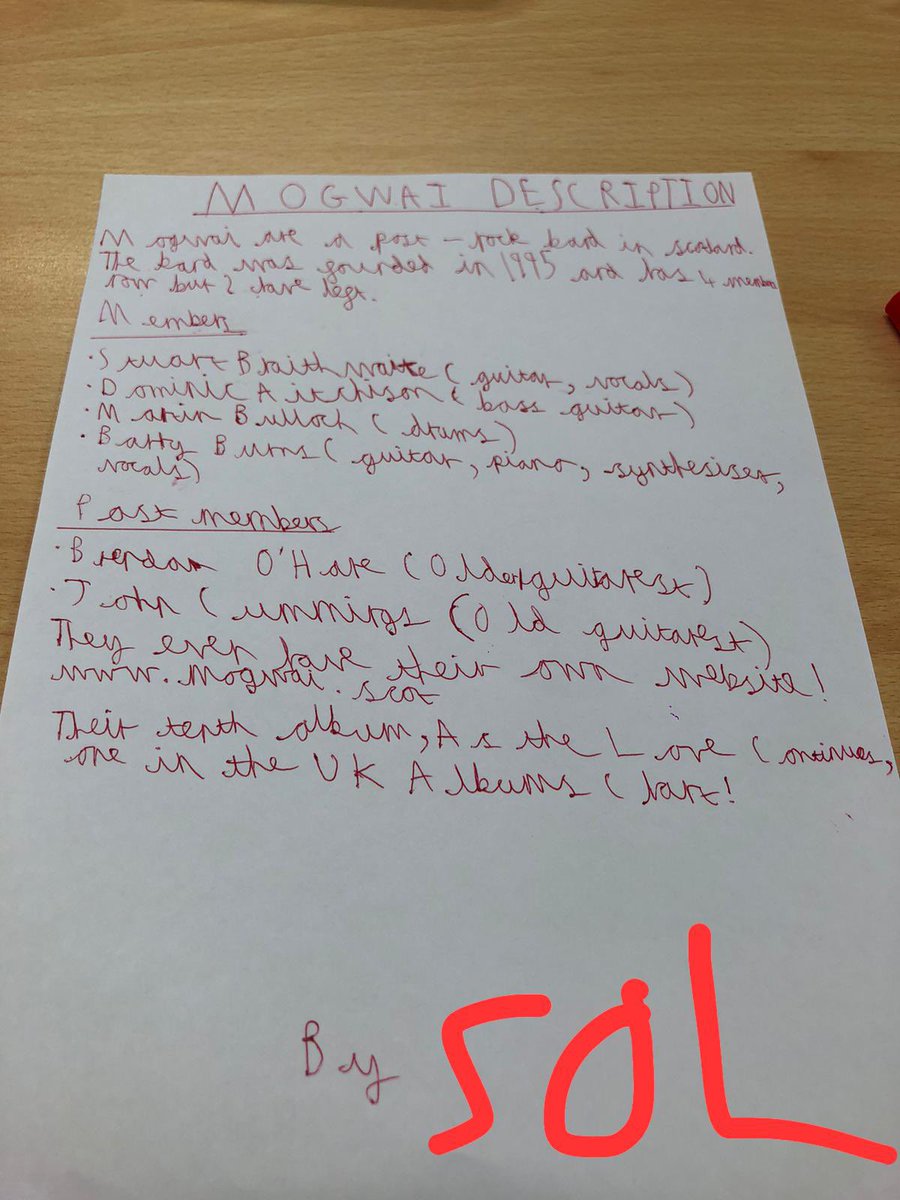 MOGWAI DESCRIPTION
Mogwai are a post-rock band in scotland.
The band was founded in 1995 and has 4 members
now but 2 have left.
Members
·Stuart Braithwaite (guitar, vocals)
·Dominic Aitchison (bass guitar)
·Martin Bulloch (drums)
·Barry Burns (guitar, piano, synthesiser,
vocals)
Past members
·Brendan O'Hare (Older guitarest)
·John Cummings (Old guitarest)
They even have their own website!
www.Mogwai.scot
Their tenth album, As the Love Continues,
one in the UK Albums Chart!
By SOL